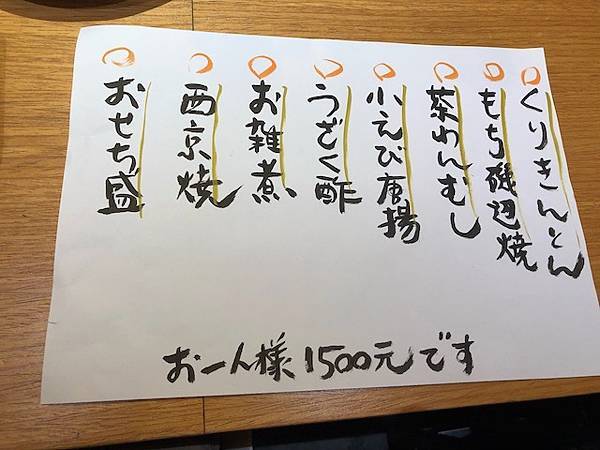 くりきんとん
もち磯辺焼
茶わんむし
小えび唐揚
うざく酢
お雑煮
西京焼
おせち盛
お一人様1500元です